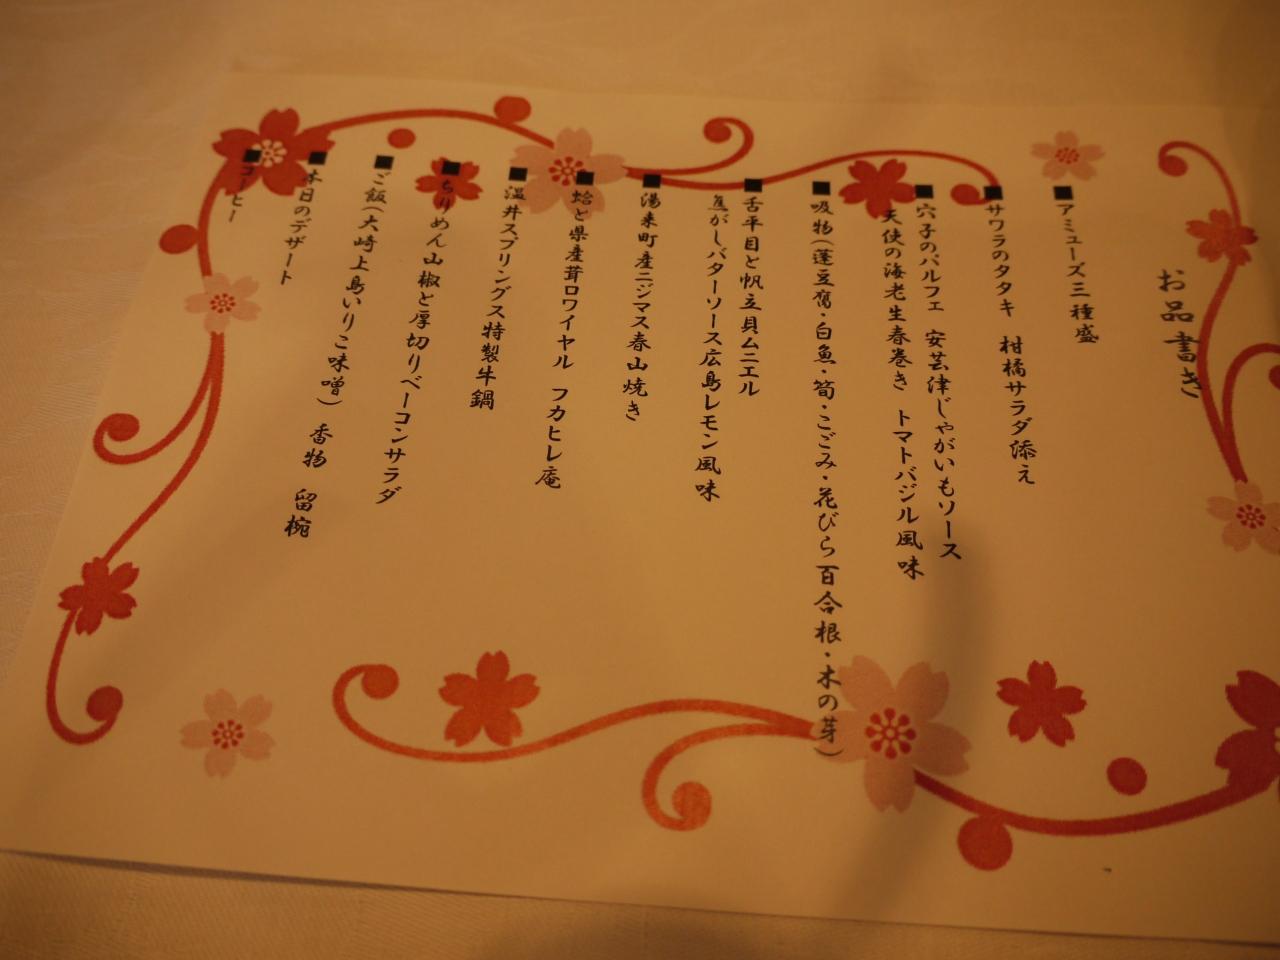 お品書き
■アミューズ三種盛
■サワラのタタキ　柑橘サラダ添え
■穴子のパルフェ　安芸津じゃがいもソース
天使の海老生春巻き　トマトバジル風味
■吸物(蓬豆腐・白魚・筍・こごみ・花びら百合根・木の芽)
■舌平目と帆立貝ムニエル
焦がしバターソース広島レモン風味
■湯来町産ニジマス春山焼き
■蛤と県産茸ロワイヤル　フカヒレ庵
■温井スプリングス特製牛鍋
■ちりめん山椒と厚切りベーコンサラダ
■ご飯(大崎上島いりこ味噌)　香物　留椀
■本日のデザート
■コーヒー